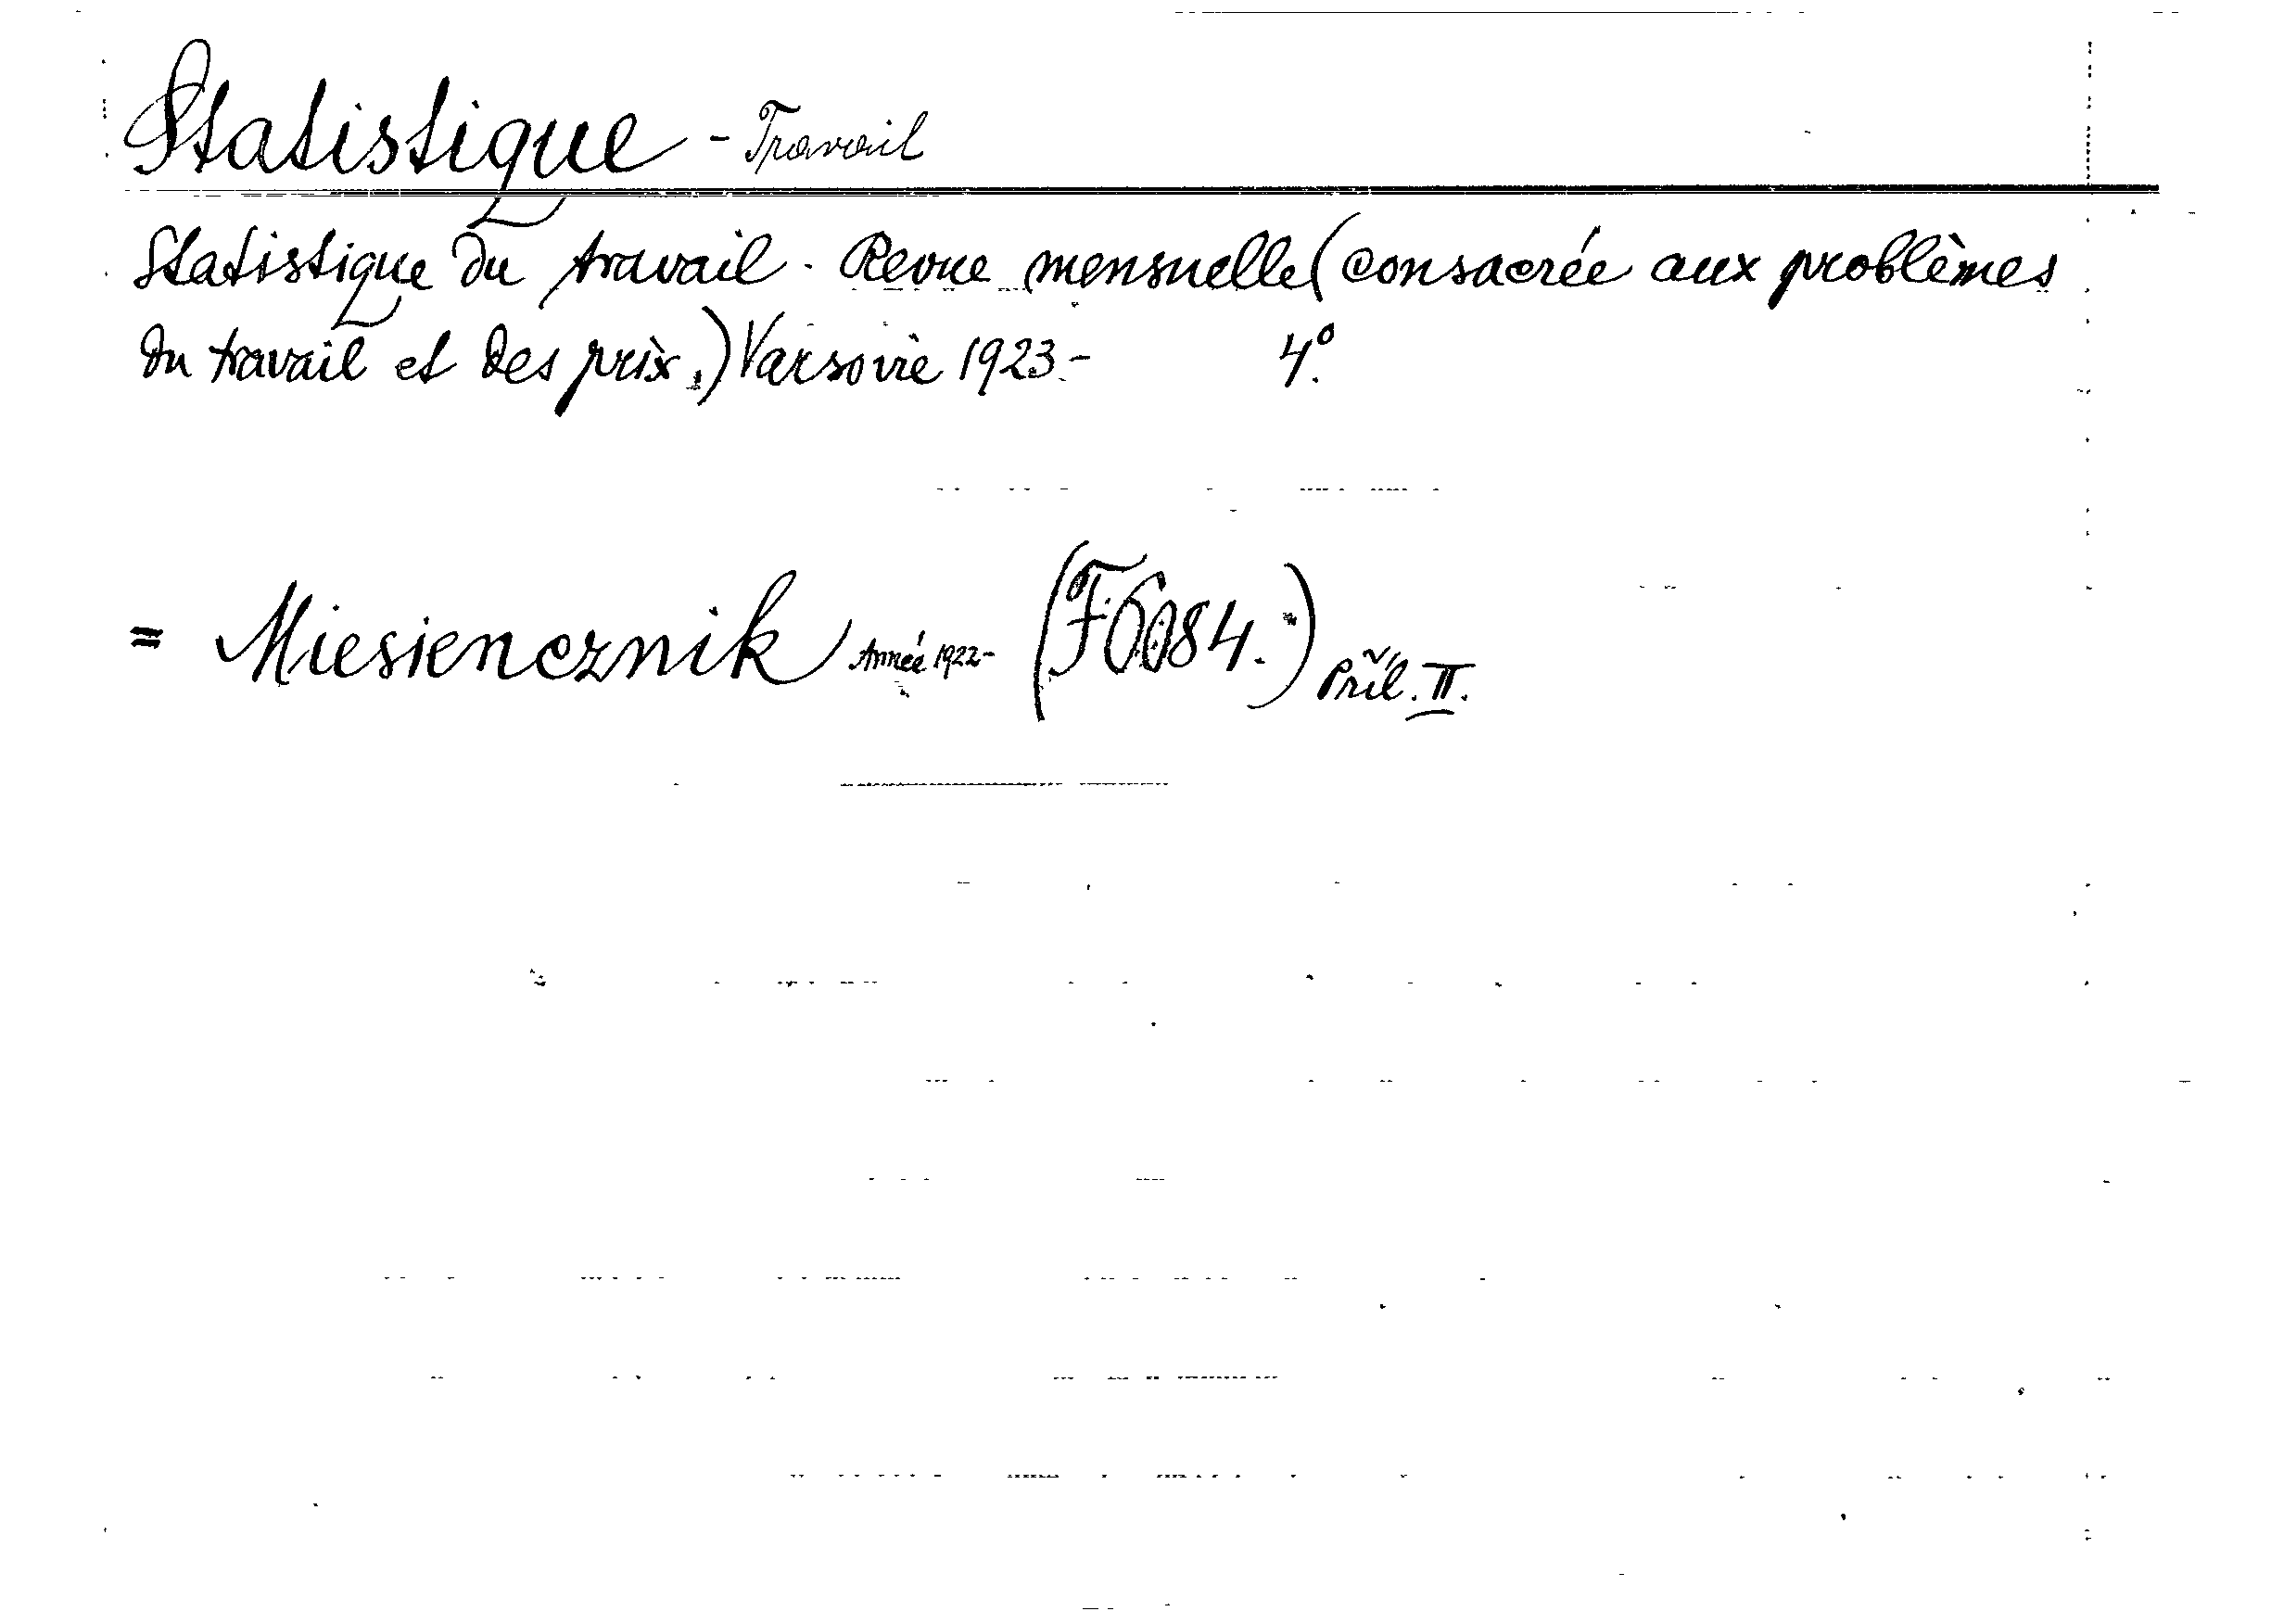 Statistique - Travail
Statistique du travail. Revue mensuelle (consacrée aux problèmes
du travail et des prix.) Varsovie 1923- 4°.
= Miesiencznik Année 1922- (F6084.) Příl. II.